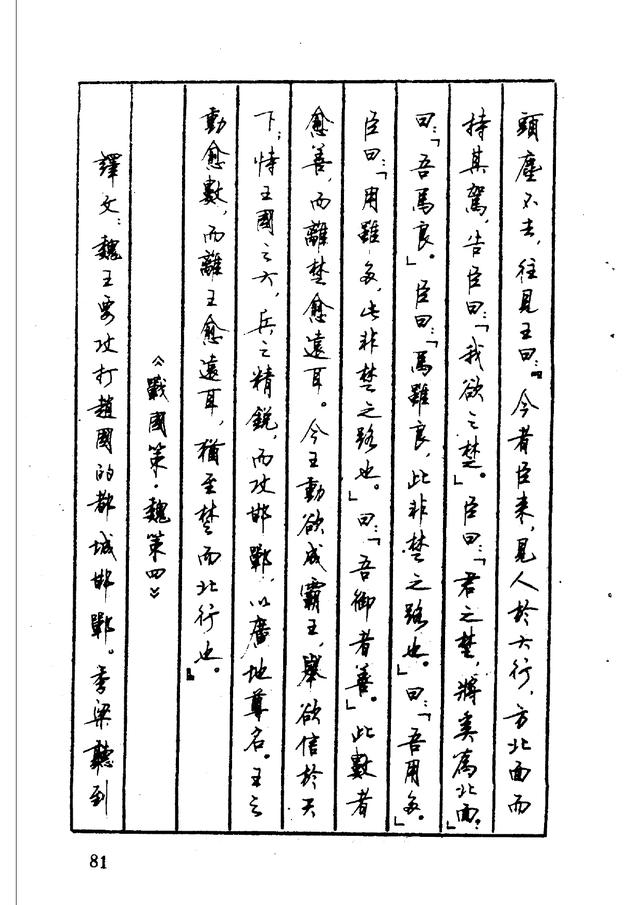 頭塵不去，往見王曰：『今者臣來，見人於大行，方北面而
持其駕，告臣曰：「我欲之楚。」臣曰：「君之楚，將奚爲北面？」
曰：「吾馬良。」臣曰：「馬雖良，此非楚之路也。」曰：「吾用多。」
臣曰：「用雖多，此非楚之路也。」曰：「吾御者善。」此數者
愈善，而離楚愈遠耳。今王動欲成霸王，舉欲信於天
下；恃王國之大，兵之精銳，而攻邯鄲，以廣地尊名。王之
動愈數，而離王愈遠耳，猶至楚而北行也。』
《戰國策·魏策四》
譯文：魏王要攻打趙國的都城邯鄲。季梁聽到
81